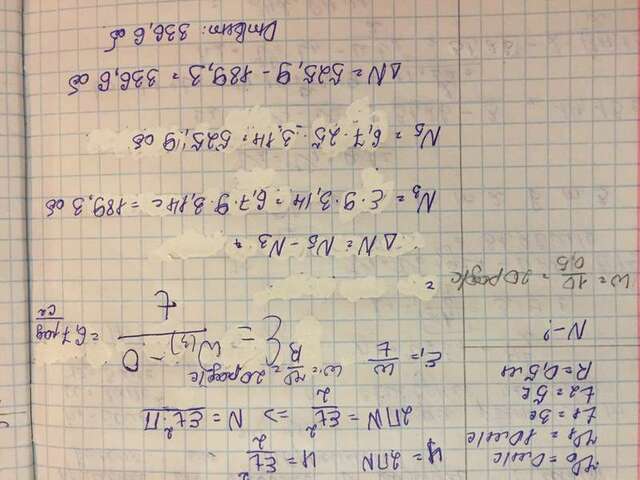 υ₀ = 0м/с
υ₁ = 10м/с
t₁ = 3с
t₂ = 5с
R = 0,5м
N - ?
ω = 10/0,5 = 20рад/с
φ = 2ПN φ = εt²/2
2ПN = εt²/2 => N = εt²·П
ε₁ = ω/t ω = υ/R = 20рад/с
= ω(3) - 0 / t = 6,7 рад/с²
=
ΔN = N₅ - N₃ =
N₃ = ε·9·3,14 = 6,7·9·3,14с = 189,3 об
N₅ = 6,7·25·3,14 = 525,9 об
ΔN = 525,9 - 189,3 = 336,6 об
Ответ: 336,6 об